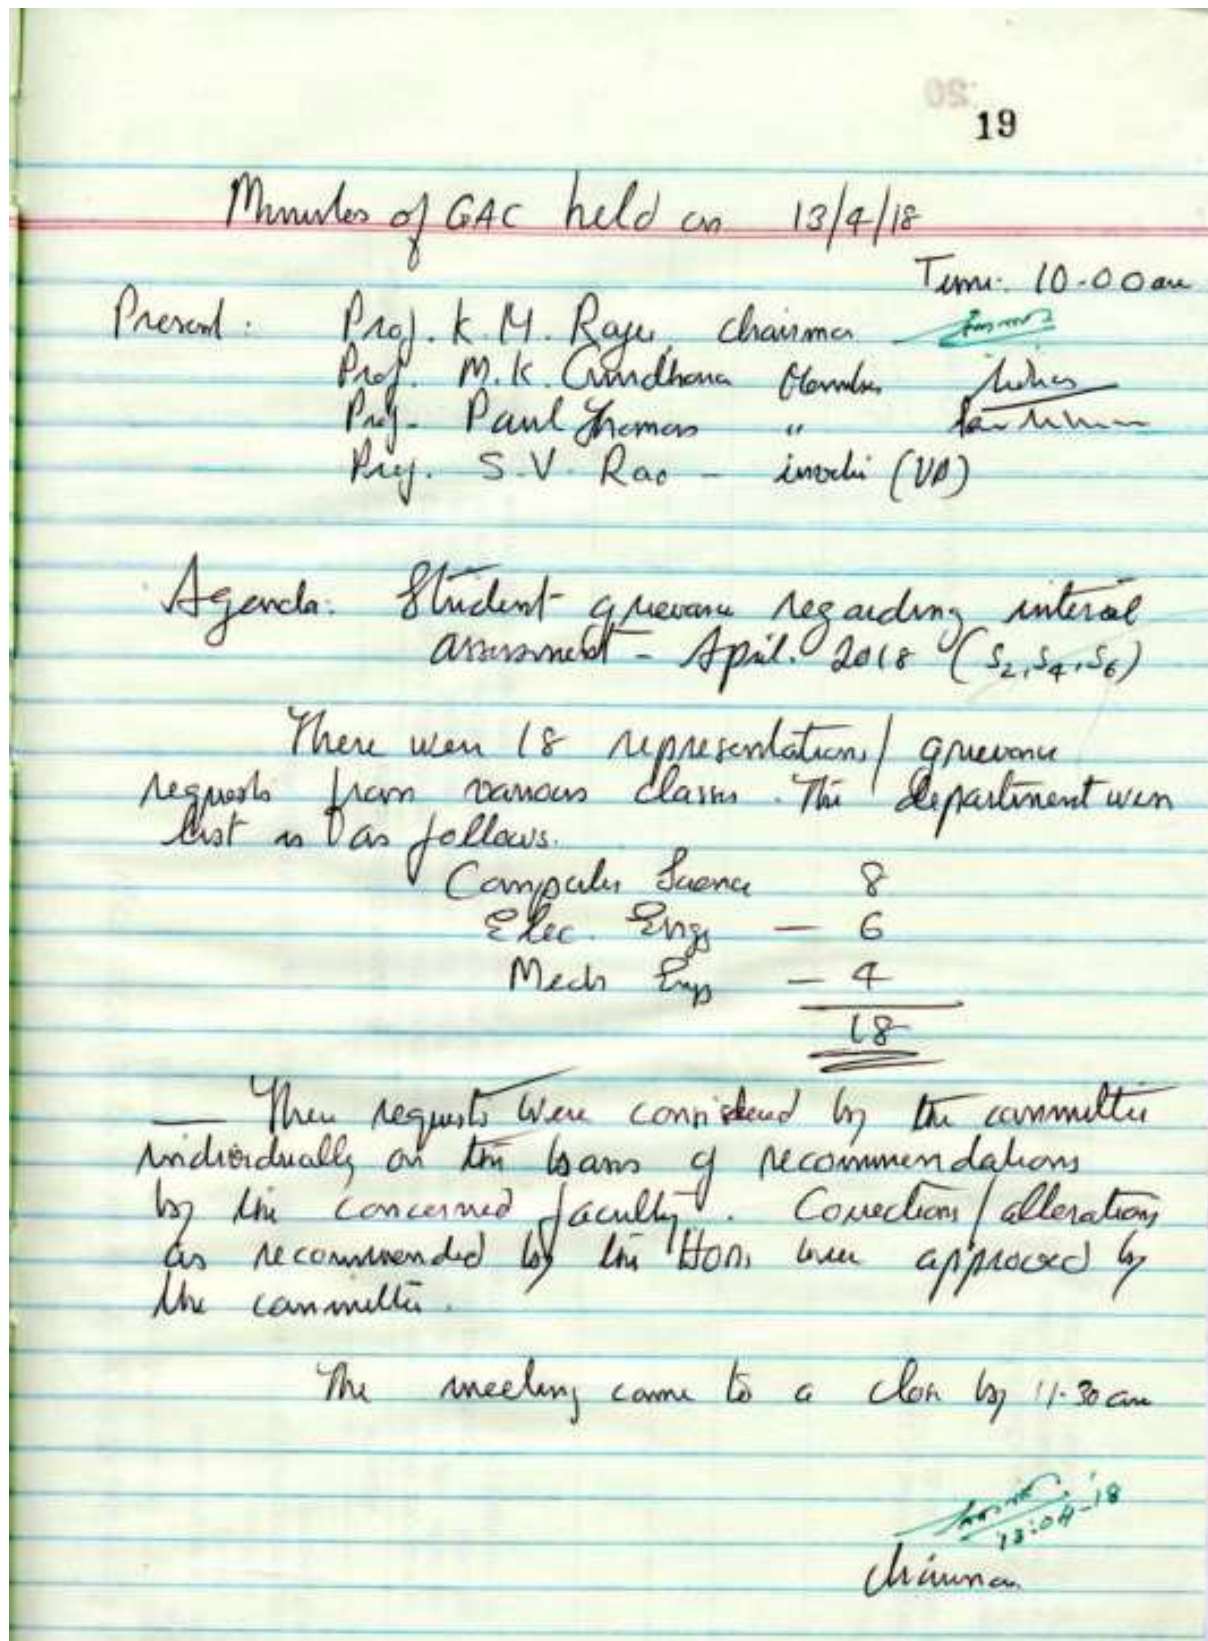 19
Minutes of GAC held on 13/4/18
Time: 10-00 am
Present: Prof. K. M. Raju, Chairman
Prof. M.K. Member
Prof. Paul Thomas "
Prof. S.V. Rao - invitee
Agenda: Student grievance regarding internal
assessment - April. 2018 (S2, S4, S6)
There were 18 representations / grievance
requests from various classes. The department wise
list is as follows.
Computer Science 8
Elec. Engg - 6
Mech Engg - 4
18
- These requests were considered by the committee
individually on the basis of recommendations
by the concerned faculty. Corrections / alterations
as recommended by the were approved by
the committee.
The meeting came to a close by 11-30 am
13-04-18
Chairman